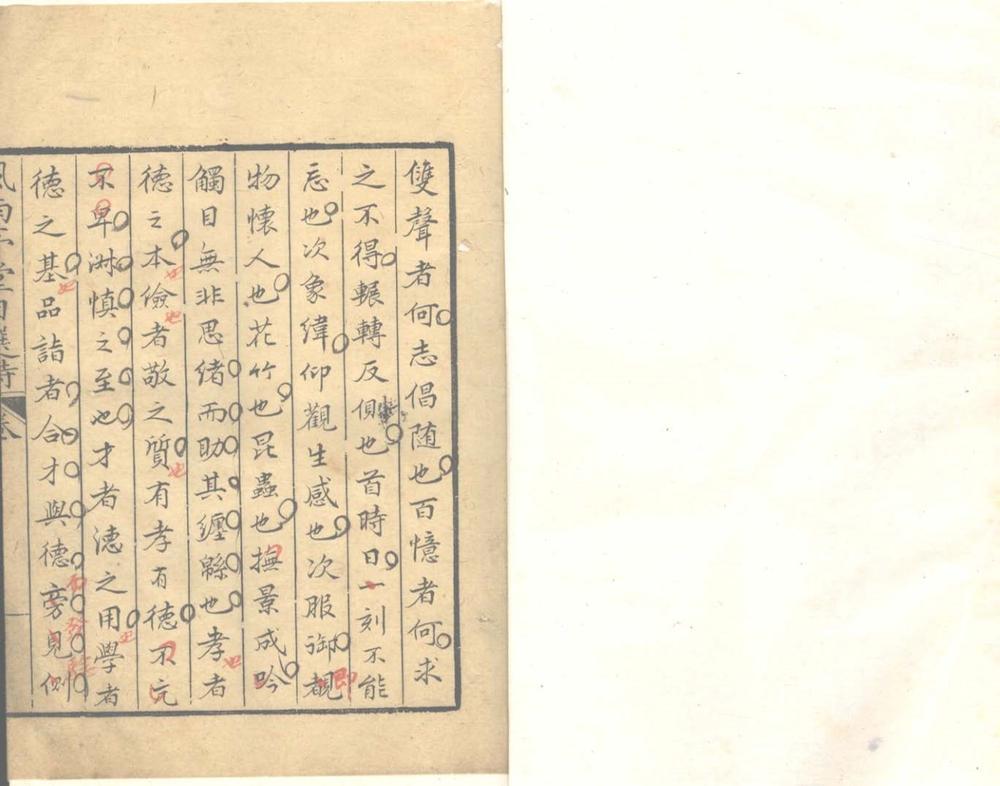 雙聲者何志倡随也百憶者何求
之不得輾轉反側也首時日一刻不能
忘也次象緯仰觀生感也次服御覩
物懷人也花竹也昆蟲也撫景成吟
觸目無非思緒而助其纏緜也孝者
德之本儉者敬之質有孝有德不亢
不卑淋慎之至也才者德之用學者
德之基品詣者合才與德旁見側
也
也
也
也
也
也
即